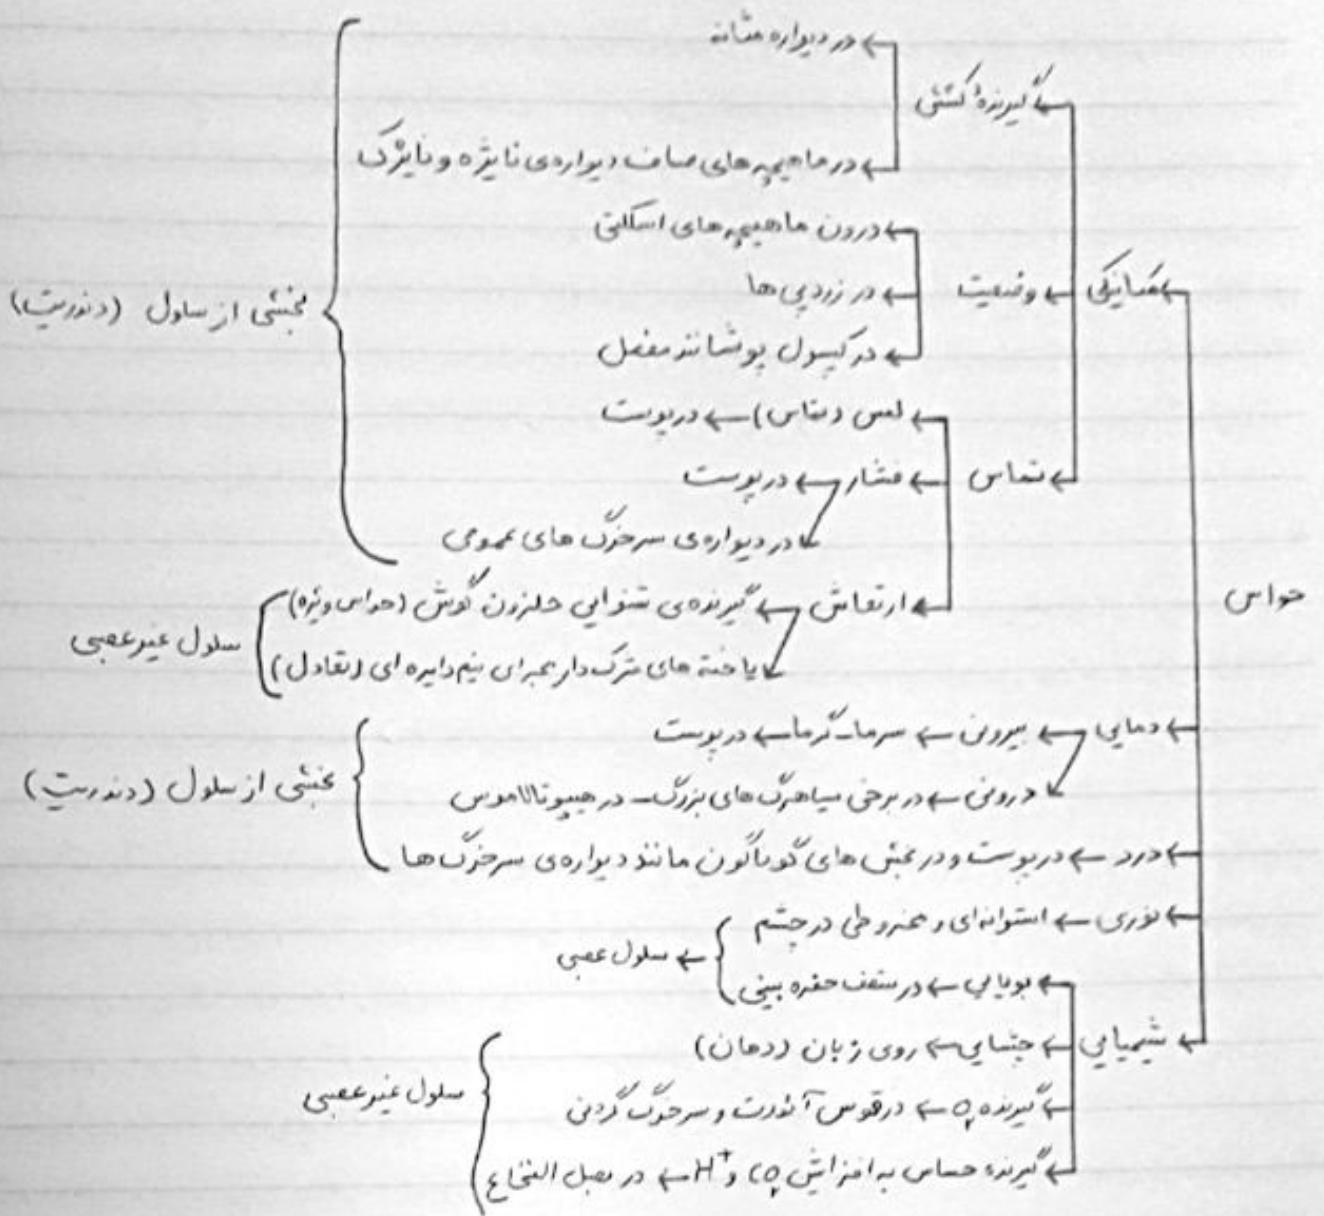 حواس
مکانیکی
گیرندهٔ کششی
در دیواره مثانه
در ماهیچه های صاف دیواره‌ی نایژه و نایژک
وضعیت
درون ماهیچه های اسکلتی
در زردپی ها
در کپسول پوشاننده مفصل
تماس
لمس (تماس) ← در پوست
فشار ← در پوست
در دیواره‌ی سرخرگ های عمومی
بخشی از سلول (دندریت)
ارتعاش ← گیرنده‌ی شنوایی حلزون گوش (حواس ویژه)
یاخته های مژک دار مجرای نیم دایره ای (تعادل)
سلول غیر عصبی
دمایی ← بیرونی ← سرما-گرما ← در پوست
درونی ← در برخی سیاهرگ های بزرگ - در هیپوتالاموس
درد ← در پوست و در بخش های گوناگون مانند دیواره‌ی سرخرگ ها
بخشی از سلول (دندریت)
نوری ← استوانه‌ای و مخروطی در چشم
شیمیایی
بویایی ← در سقف حفره بینی
← سلول عصبی
چشایی ← روی زبان (دهان)
گیرنده O₂ ← در قوس آئورت و سرخرگ گردنی
گیرنده حساس به افزایش CO₂ و H⁺ ← در بصل النخاع
سلول غیر عصبی